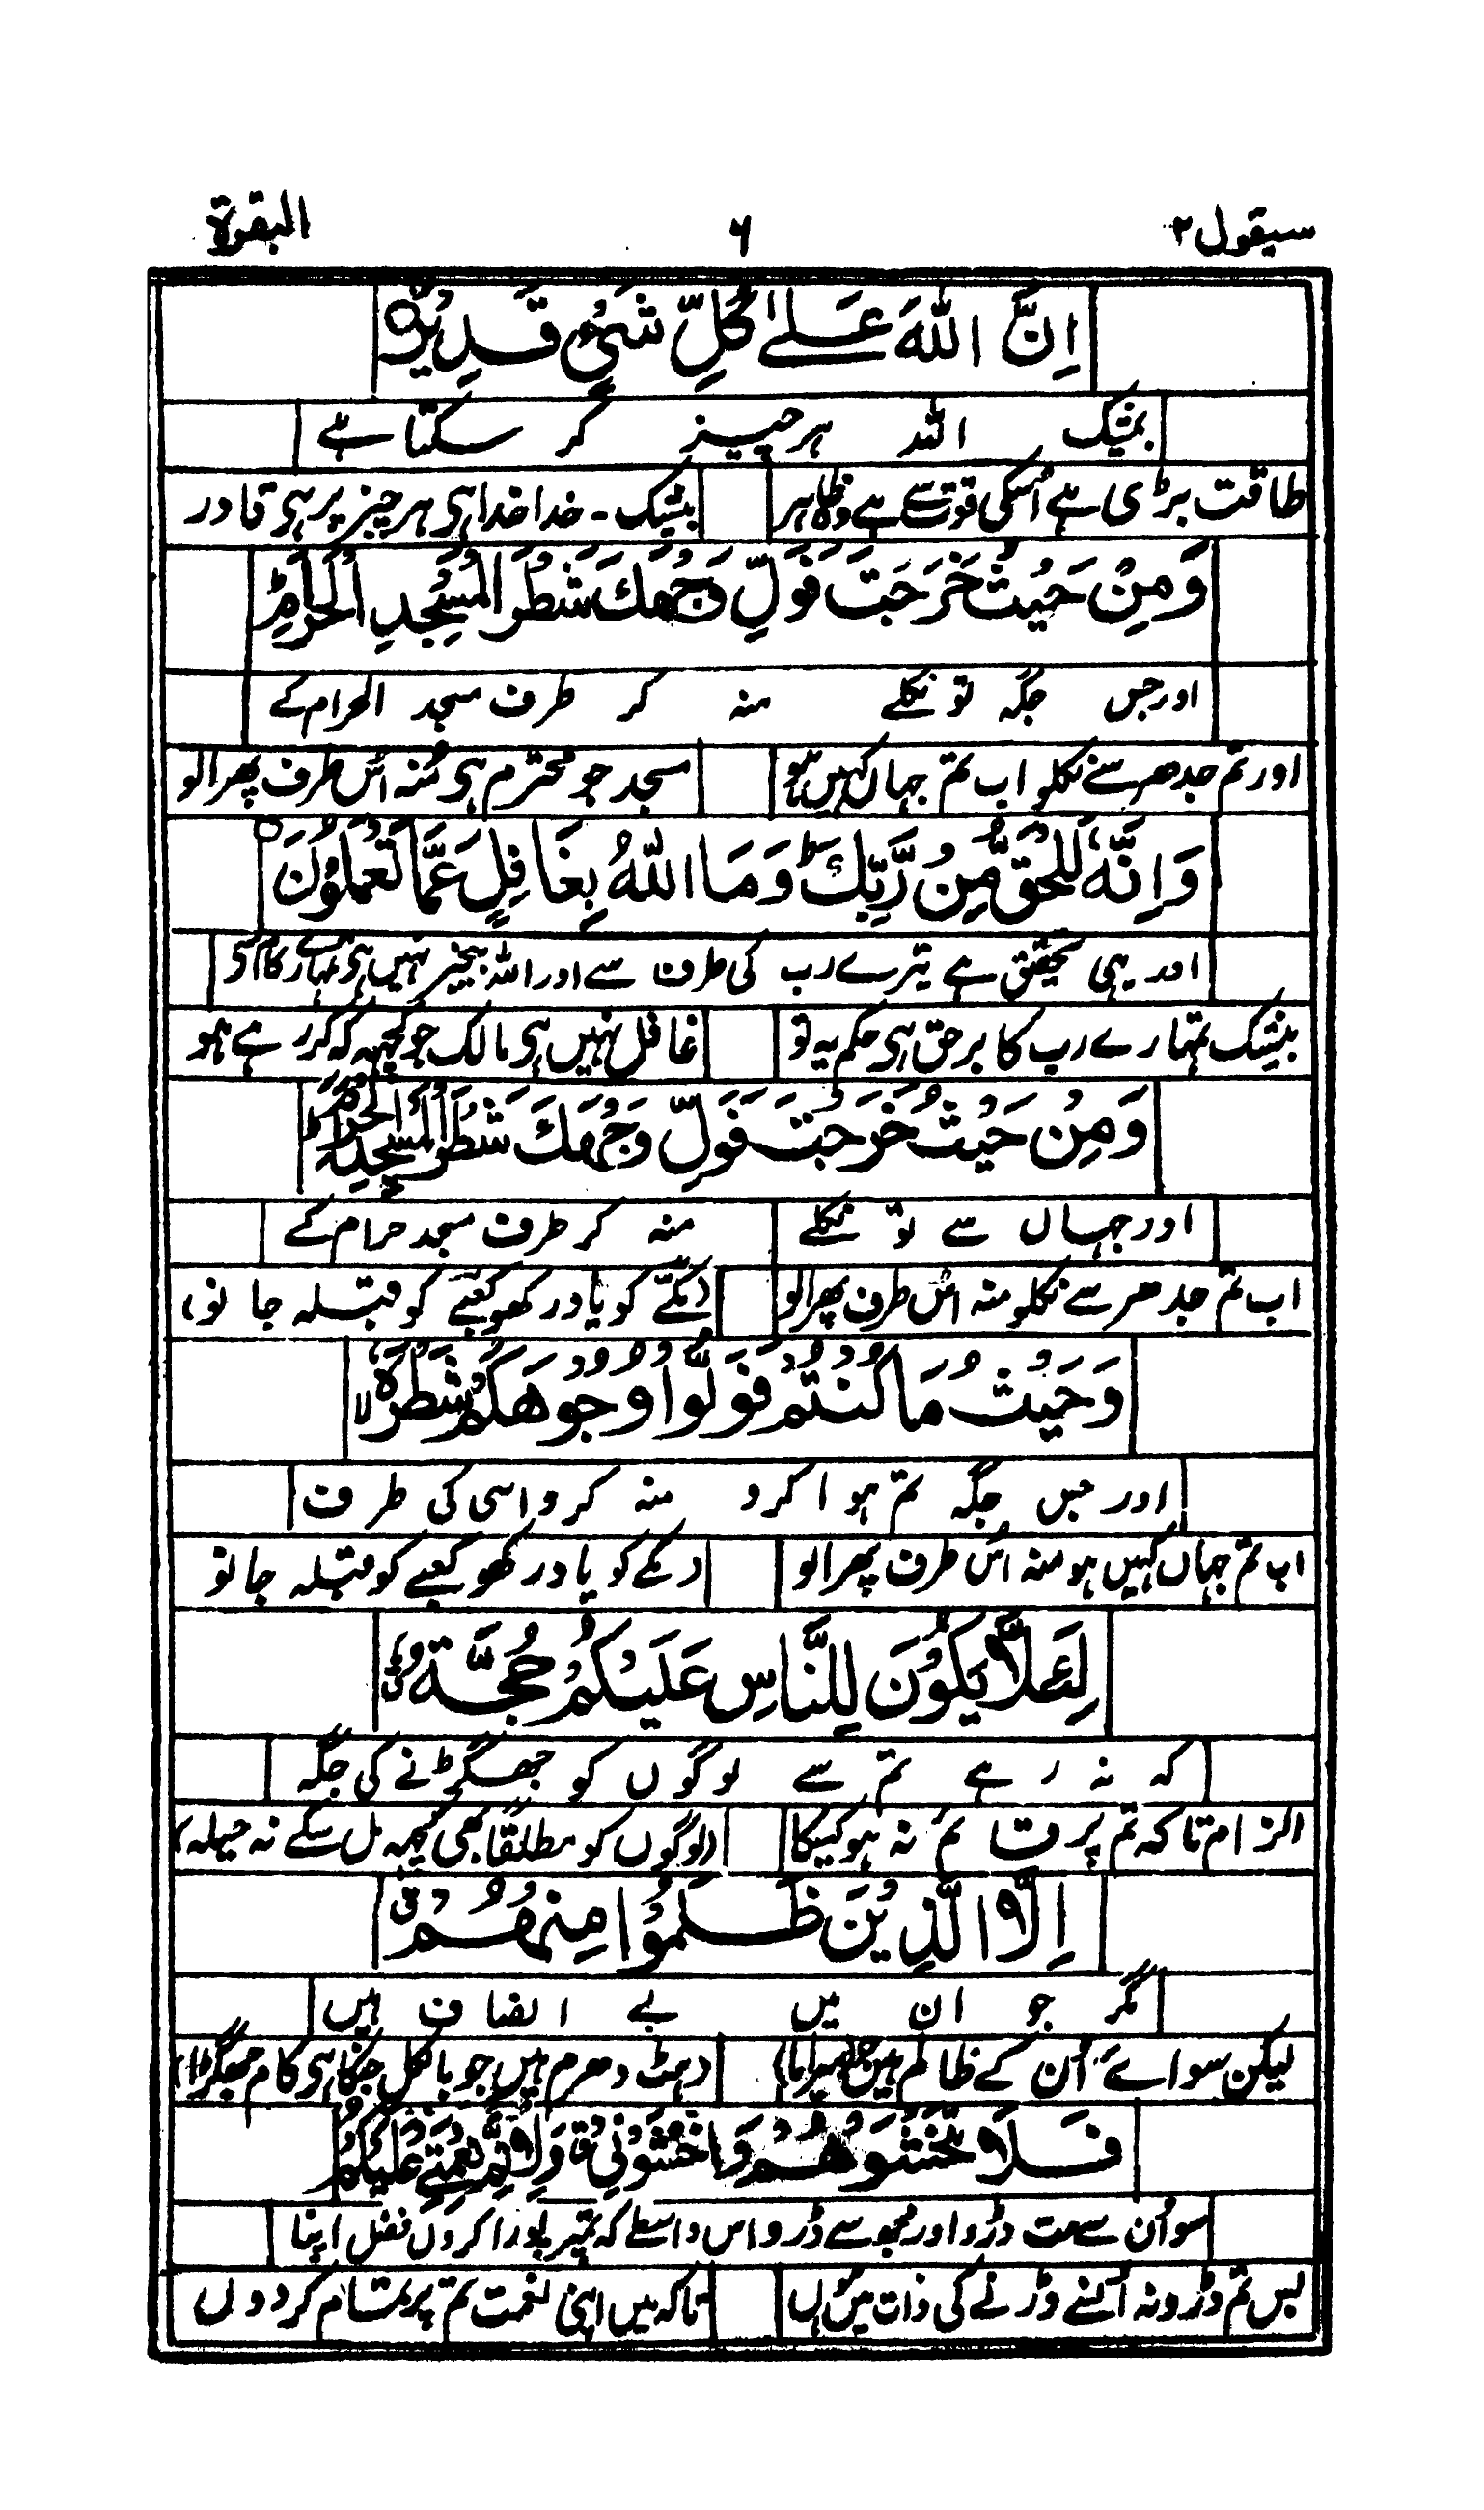 سیقول ۲ ۶ البقرة
اِنَّ اللهَ عَلٰى كُلِّ شَیْءٍ قَدِیْرٌ
بیشک اللہ ہر چیز کر سکتا ہے
طاقت بڑی ہے اُسکی قوت سے ہے وہ ظاہر بیشک ۔ خدا خدا ہی ہر چیز پر ہی قادر
وَمِنْ حَیْثُ خَرَجْتَ فَوَلِّ وَجْهَكَ شَطْرَ الْمَسْجِدِ الْحَرَامِ ط
اور جس جگہ تو نکلے منہ کر طرف مسجد الحرام کے
اور تم جدھر سے نکلو اب تم جہاں کہیں ہو مسجد جو محترم ہی مُنہ اُس طرف پھرا لو
وَاِنَّهٗ لَلْحَقُّ مِنْ رَّبِّكَ ط وَمَا اللهُ بِغَافِلٍ عَمَّا تَعْمَلُوْنَ
اور یہی تحقیق ہے تیرے رب کی طرف سے اور اللہ بیخبر نہیں ہی تمہارے کام سی
بیشک تمہارے رب کا برحق ہی حکم یہ تو غافل نہیں ہی مالک جو کچہہ کہ کر رہے ہو
وَمِنْ حَیْثُ خَرَجْتَ فَوَلِّ وَجْهَكَ شَطْرَ الْمَسْجِدِ الْحَرَامِ ط
اور جہاں سے تو نکلے منہ کر طرف مسجد حرام کے
اب تم جدھر سے نکلو منہ اُس طرف پھرا لو (مکّے کو یاد رکھو کعبے کو قبلہ جانو)
وَحَیْثُ مَا كُنْتُمْ فَوَلُّوْا وُجُوْهَكُمْ شَطْرَهٗ لا
اور جس جگہ تم ہوا کرو منہ کرو اسی کی طرف
اب تم جہاں کہیں ہو منہ اُس طرف پھرا لو (مکے کو یاد رکھو کعبے کو قبلہ جانو
لِئَلَّا یَكُوْنَ لِلنَّاسِ عَلَیْكُمْ حُجَّةٌ
کہ نہ رہے تم سے لوگوں کو جھگڑنے کی جگہ
الزام تاکہ تم پر قائم نہ ہو کسیکا (لوگوں کو مطلقاً بھی کچہہ مل سکے نہ حیلہ)
اِلَّا الَّذِیْنَ ظَلَمُوْا مِنْهُمْ ق
مگر جو ان میں بے انصاف ہیں
لیکن سواے اُن کے ظالم ہیں (ہٹ دھرم ہیں جو بالکل جنکا ہی کام جھگڑا)
فَلَا تَخْشَوْهُمْ وَاخْشَوْنِیْ ق وَلِاُتِمَّ نِعْمَتِیْ عَلَیْكُمْ
سو اُن سے مت ڈرو اور مجھ سے ڈرو اس واسطے کہ تمپر پورا کروں فضل اپنا
بس تم ڈرو نہ اُنسے ڈرنے کی ذات میں ہُں تاکہ میں اپنی نعمت تم پر تمام کردوں